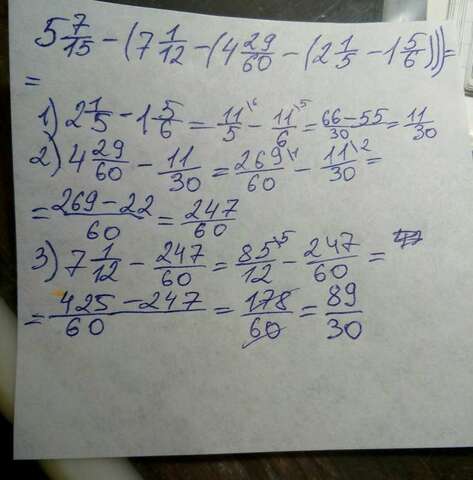 5 7/15 − (7 1/12 − (4 29/60 − (2 1/5 − 1 5/6))) =
=
1) 2 1/5 − 1 5/6 = 11/5 \6 − 11/6 \5 = 66−55/30 = 11/30
2) 4 29/60 − 11/30 = 269/60 \1 − 11/30 \2 =
= 269−22/60 = 247/60
3) 7 1/12 − 247/60 = 85/12 \5 − 247/60 =
= 425−247/60 = 178/60 = 89/30